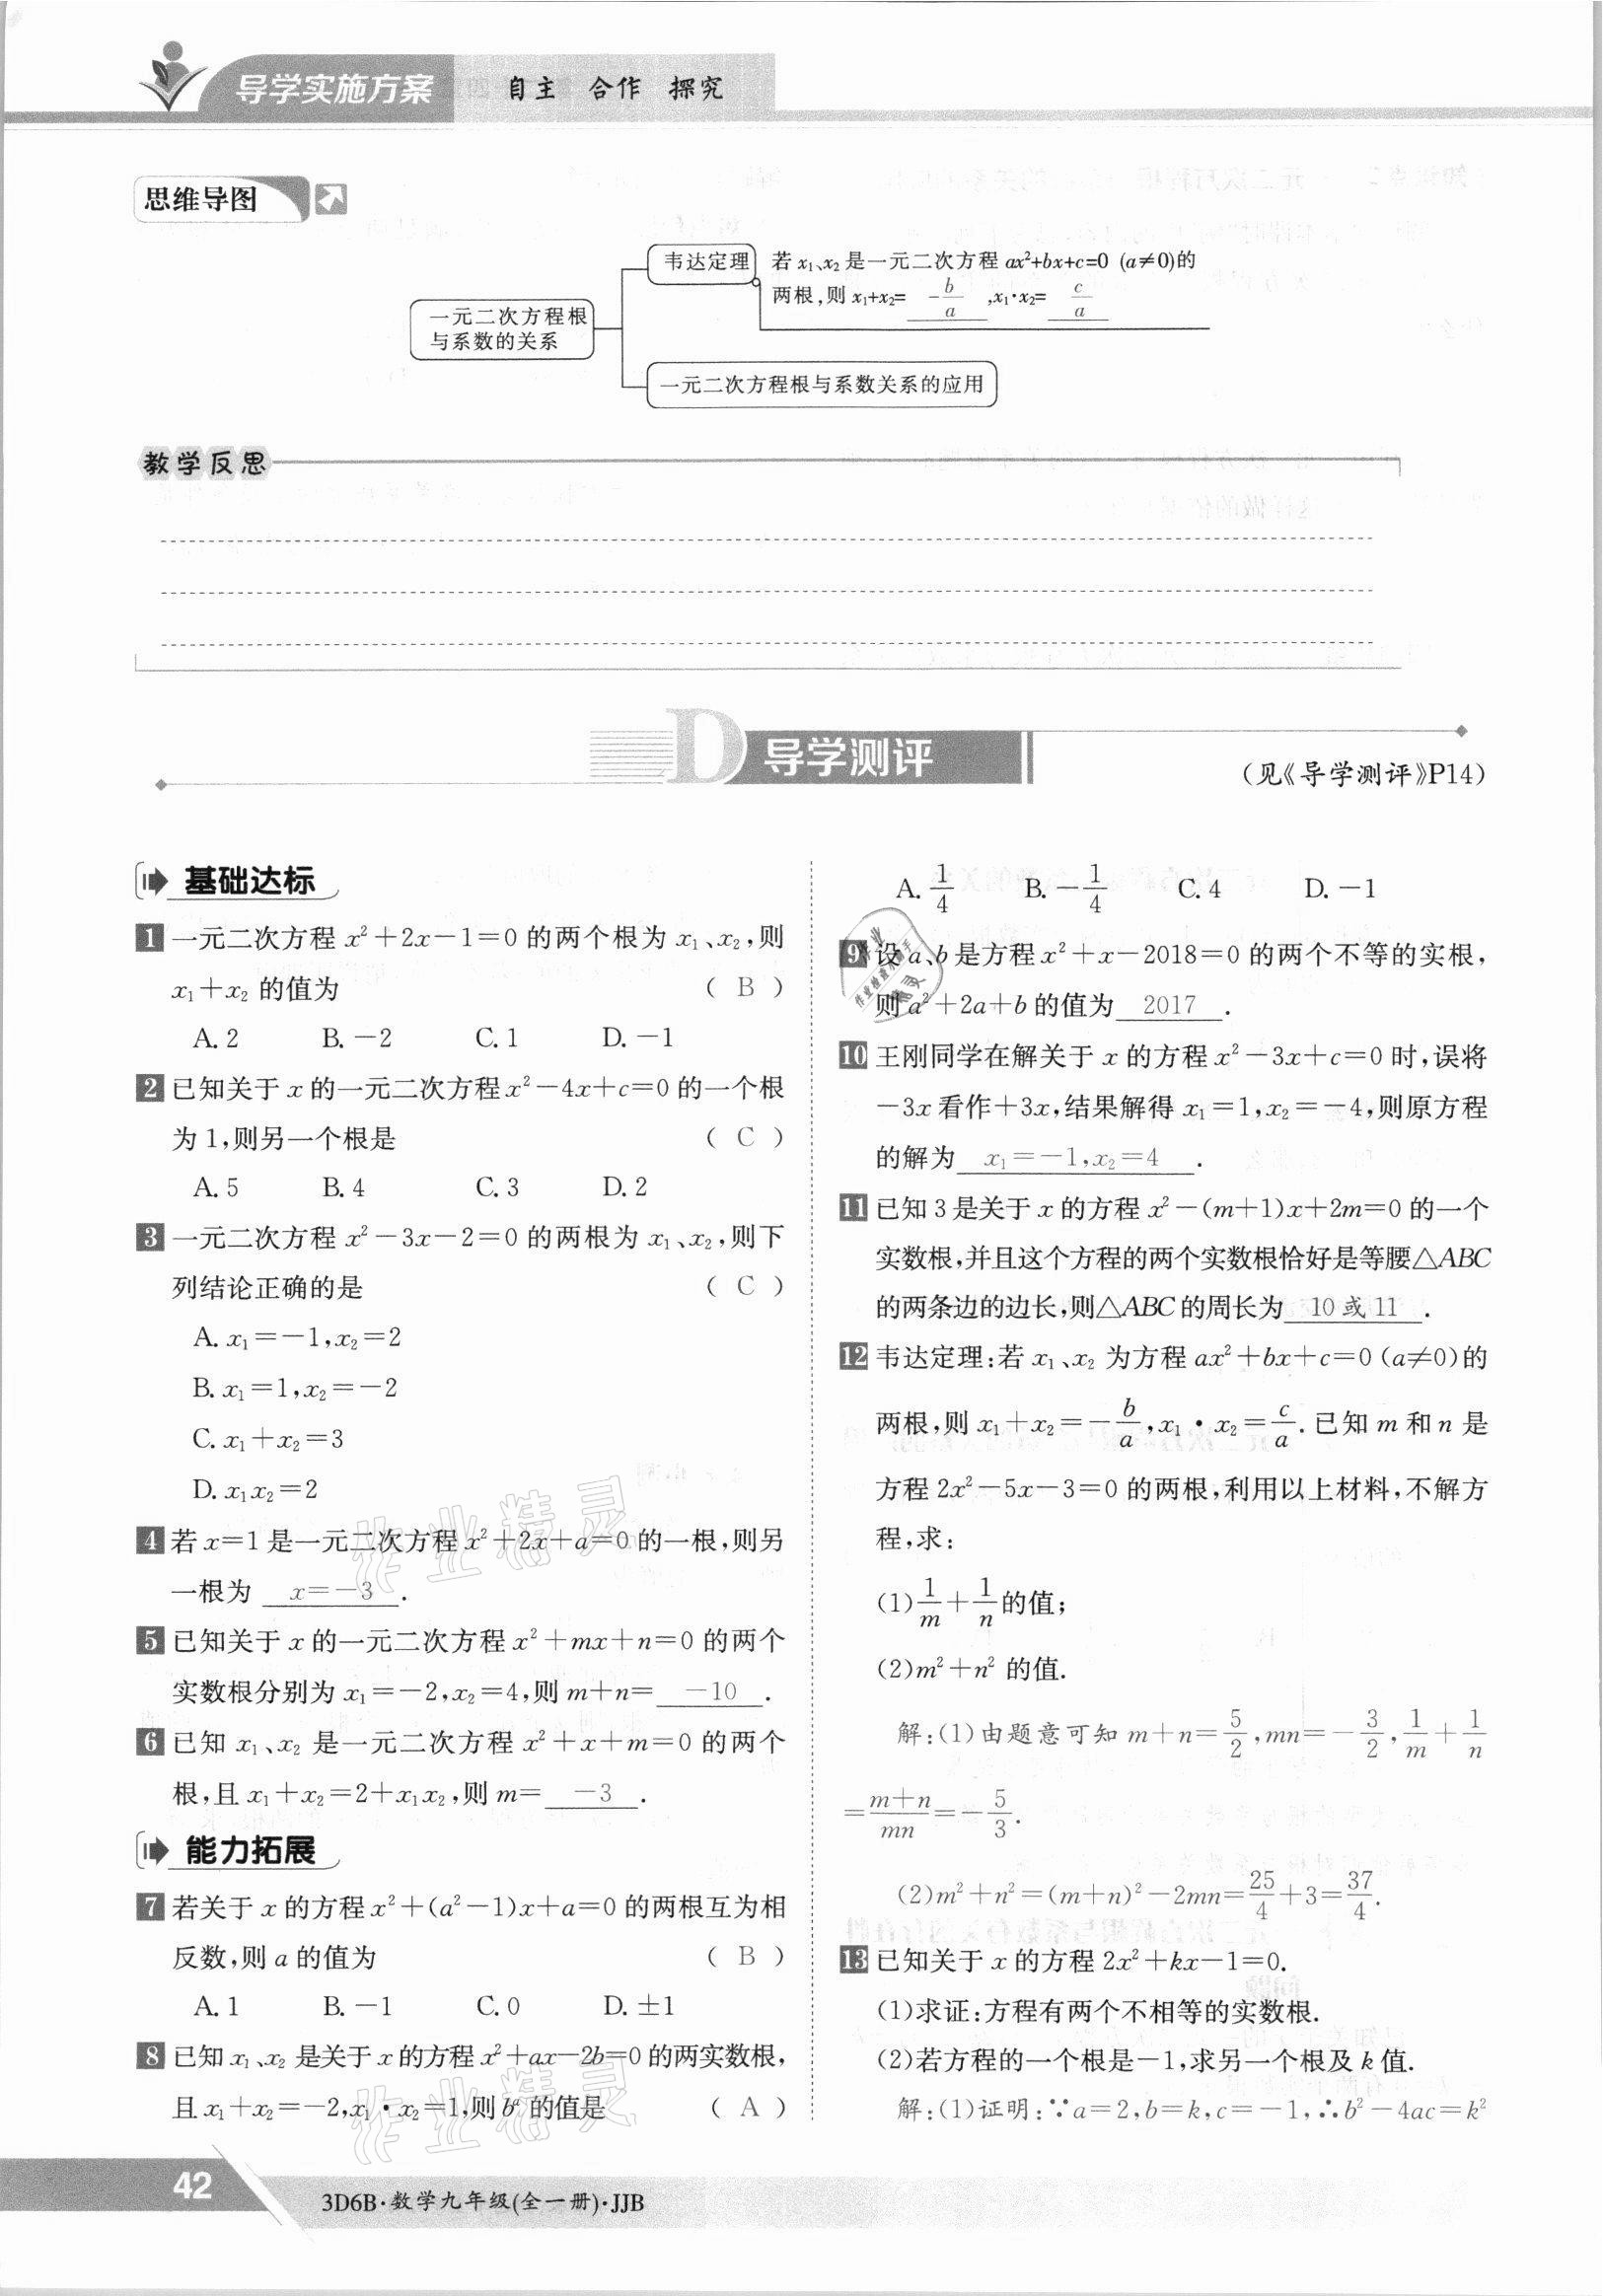 导学实施方案 自主 合作 探究
思维导图
一元二次方程根与系数的关系
韦达定理
若 x₁、x₂ 是一元二次方程 ax²+bx+c=0 (a≠0)的
两根,则 x₁+x₂= -b/a ,x₁·x₂= c/a
一元二次方程根与系数关系的应用
教学反思
D 导学测评
(见《导学测评》P14)
基础达标
1 一元二次方程 x²+2x-1=0 的两个根为 x₁、x₂,则
x₁+x₂ 的值为 ( B )
A. 2 B. -2 C. 1 D. -1
2 已知关于 x 的一元二次方程 x²-4x+c=0 的一个根
为 1,则另一个根是 ( C )
A. 5 B. 4 C. 3 D. 2
3 一元二次方程 x²-3x-2=0 的两根为 x₁、x₂,则下
列结论正确的是 ( C )
A. x₁=-1,x₂=2
B. x₁=1,x₂=-2
C. x₁+x₂=3
D. x₁x₂=2
4 若 x=1 是一元二次方程 x²+2x+a=0 的一根,则另
一根为 x=-3 .
5 已知关于 x 的一元二次方程 x²+mx+n=0 的两个
实数根分别为 x₁=-2,x₂=4,则 m+n= -10 .
6 已知 x₁、x₂ 是一元二次方程 x²+x+m=0 的两个
根,且 x₁+x₂=2+x₁x₂,则 m= -3 .
能力拓展
7 若关于 x 的方程 x²+(a²-1)x+a=0 的两根互为相
反数,则 a 的值为 ( B )
A. 1 B. -1 C. 0 D. ±1
8 已知 x₁、x₂ 是关于 x 的方程 x²+ax-2b=0 的两实数根,
且 x₁+x₂=-2,x₁·x₂=1,则 bᵃ 的值是 ( A )
A. 1/4 B. -1/4 C. 4 D. -1
9 设 a、b 是方程 x²+x-2018=0 的两个不等的实根,
则 a²+2a+b 的值为 2017 .
10 王刚同学在解关于 x 的方程 x²-3x+c=0 时,误将
-3x 看作+3x,结果解得 x₁=1,x₂=-4,则原方程
的解为 x₁=-1,x₂=4 .
11 已知 3 是关于 x 的方程 x²-(m+1)x+2m=0 的一个
实数根,并且这个方程的两个实数根恰好是等腰△ABC
的两条边的边长,则△ABC 的周长为 10 或 11 .
12 韦达定理:若 x₁、x₂ 为方程 ax²+bx+c=0 (a≠0)的
两根,则 x₁+x₂=-b/a,x₁·x₂=c/a. 已知 m 和 n 是
方程 2x²-5x-3=0 的两根,利用以上材料,不解方
程,求:
(1)1/m+1/n的值;
(2)m²+n² 的值.
解:(1)由题意可知 m+n=5/2,mn=-3/2,1/m+1/n
=(m+n)/mn=-5/3.
(2)m²+n²=(m+n)²-2mn=25/4+3=37/4.
13 已知关于 x 的方程 2x²+kx-1=0.
(1)求证:方程有两个不相等的实数根.
(2)若方程的一个根是-1,求另一个根及 k 值.
解:(1)证明:∵a=2,b=k,c=-1,∴b²-4ac=k²
42
3D6B·数学九年级(全一册)·JJB
作业精灵
作业精灵